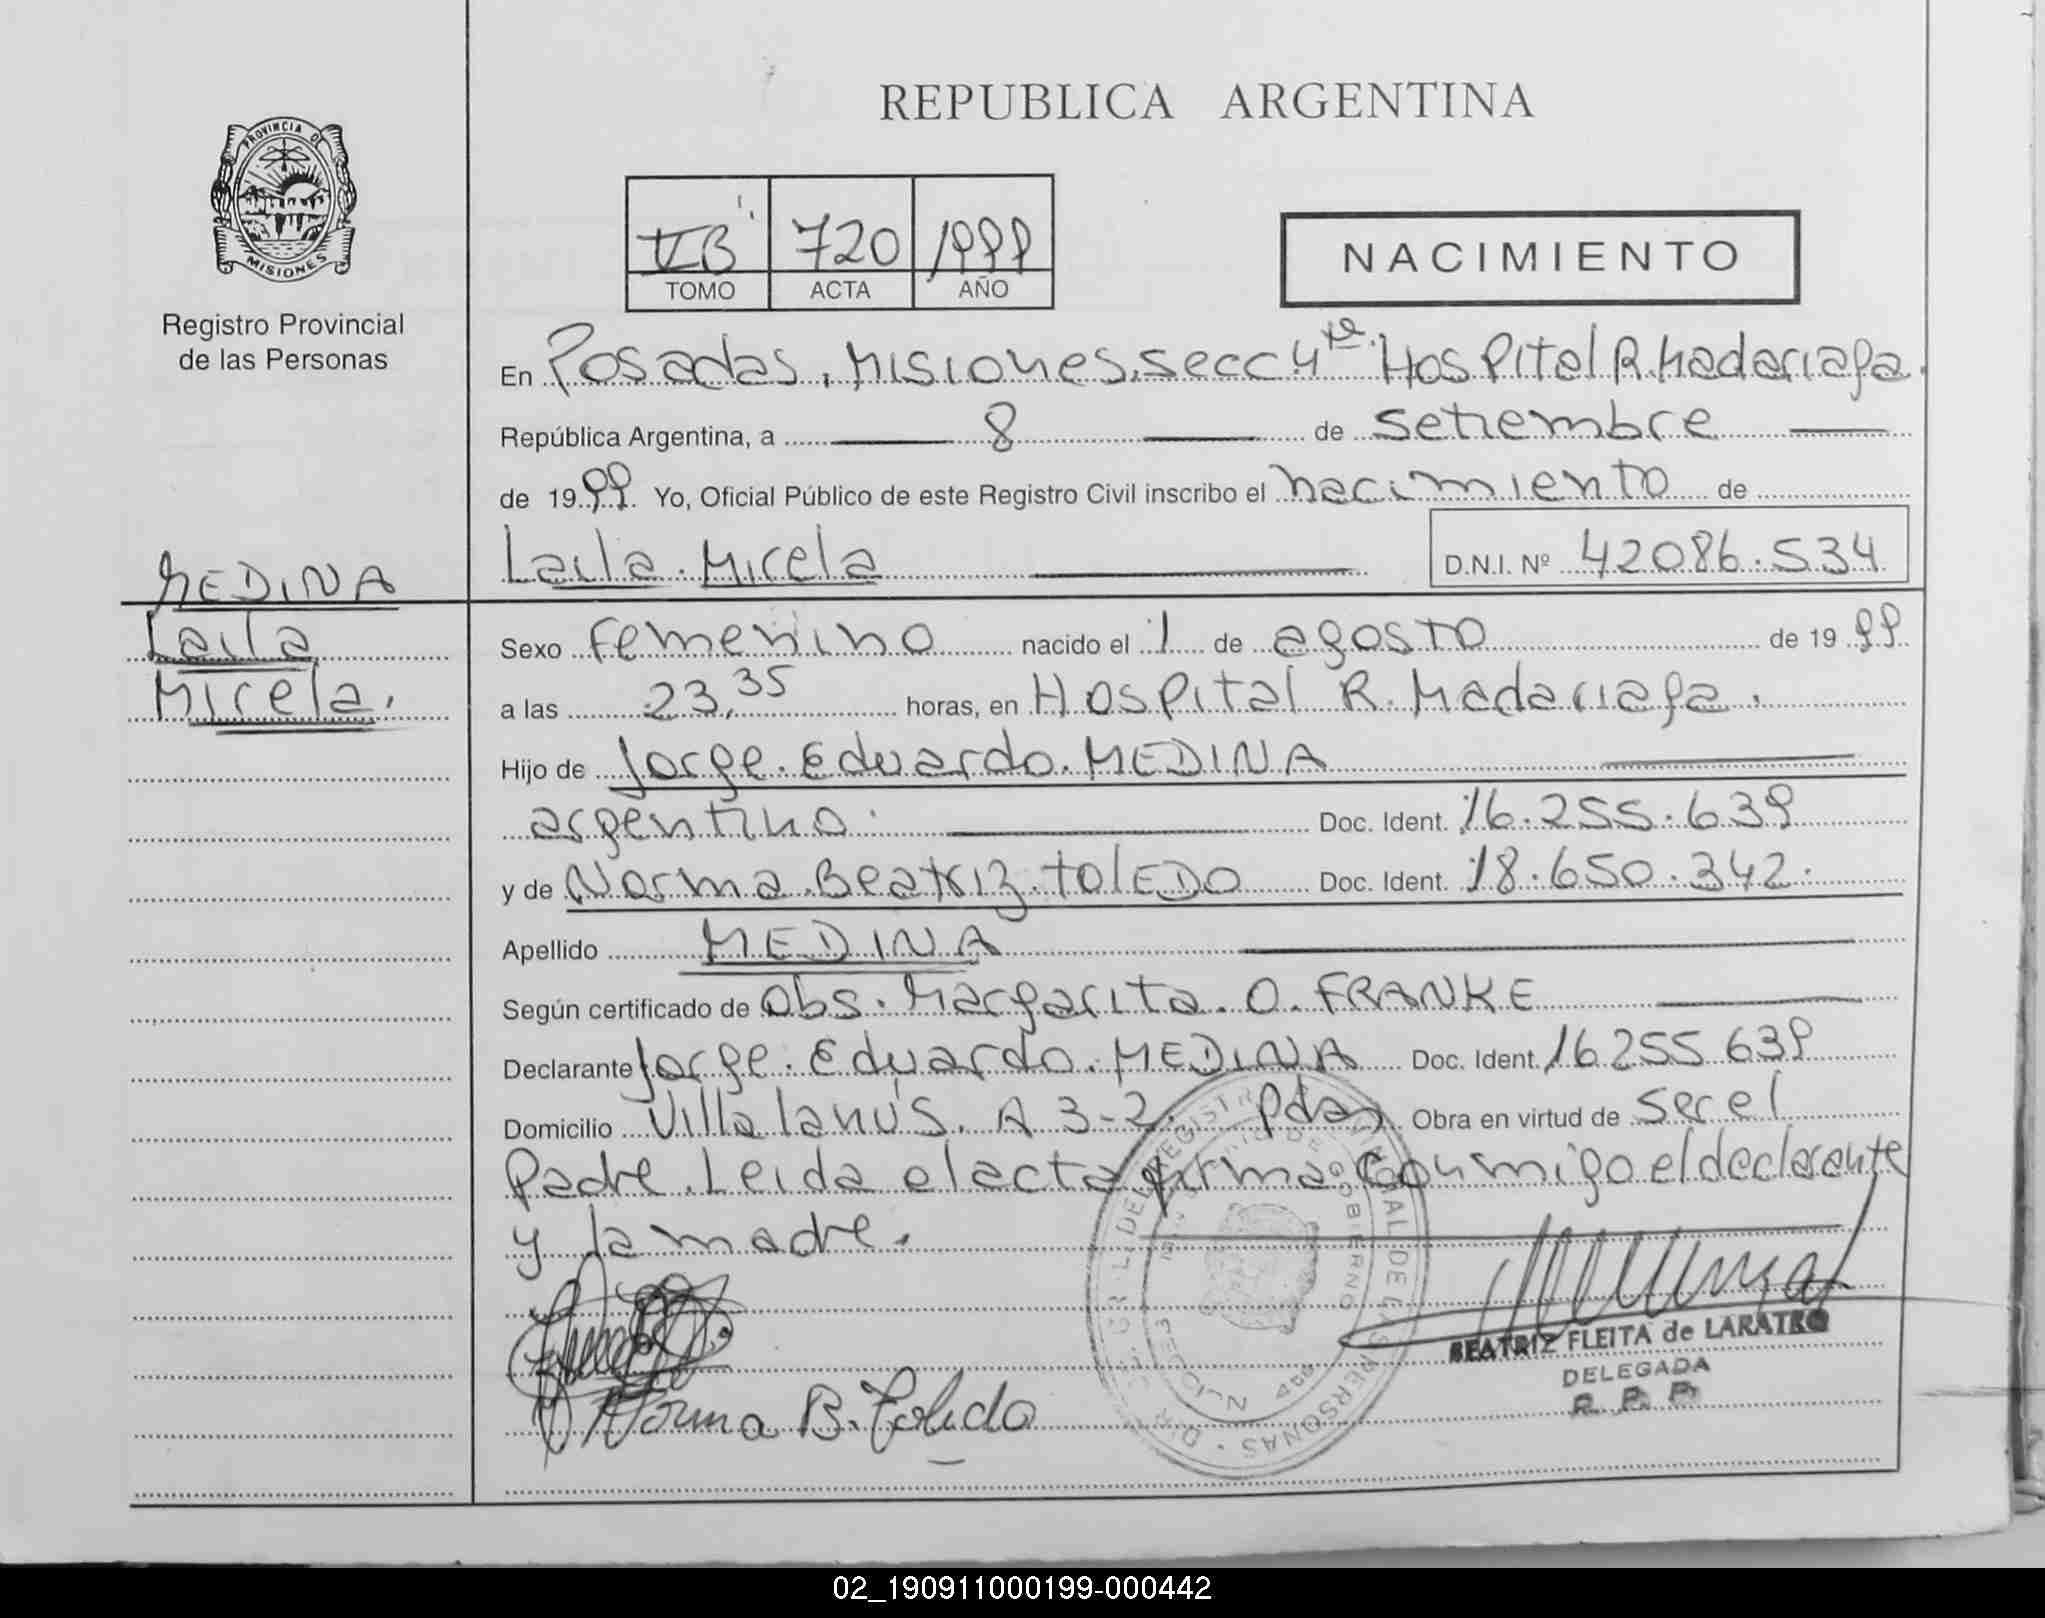 REPUBLICA ARGENTINA
PROVINCIA DE
MISIONES
Registro Provincial
de las Personas
VB 720 1999
TOMO ACTA AÑO
NACIMIENTO
En Posadas, Misiones, secc 4ta Hospital R. Madariaga.
República Argentina, a 8 de setiembre
de 1999. Yo, Oficial Público de este Registro Civil inscribo el nacimiento de
Laila Micela D.N.I. Nº 42086.534
MEDINA
Laila
Micela.
Sexo femenino nacido el 1 de agosto de 1999
a las 23,35 horas, en Hospital R. Madariaga.
Hijo de Jorge Eduardo MEDINA
argentino. Doc. Ident. 16.255.639
y de Norma Beatriz TOLEDO Doc. Ident. 18.650.342.
Apellido MEDINA
Según certificado de Obs. Margarita O. FRANKE
Declarante Jorge Eduardo MEDINA Doc. Ident. 16255639
Domicilio Villa Lanús. A 3-2. Pdas Obra en virtud de ser el
Padre. Leida el acta firma conmigo el declarante
y la madre.
BEATRIZ FLEITA de LARATRO
DELEGADA
R. P. P.
Norma B. Toledo
02_190911000199-000442